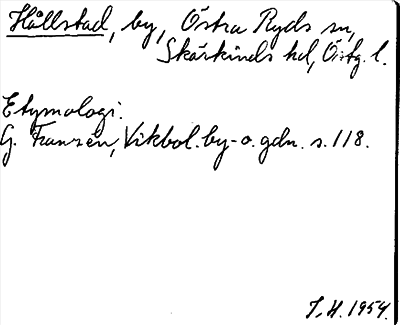 Hållstad, by, Östra Ryds sn,
Skärkinds hd, Östg. l.
Etymologi.
G. Franzén, Vikbol. by- o. gdn. s. 118.
I. H. 1954.